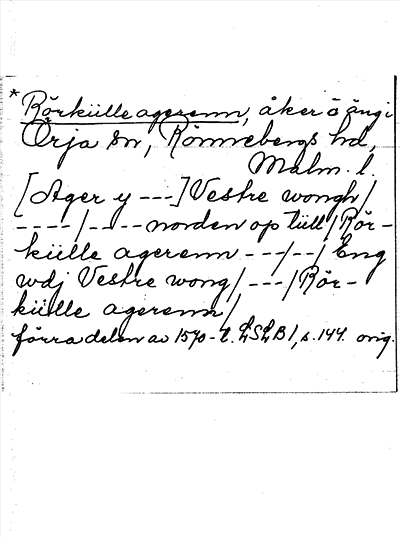 * Rörkülle agerenn, åker o äng i
Örja sn, Rönnebergs hd,
Malm. l.
[Ager y ---] Vestre wongh/
----/---- norden op till/Rör-
külle agerenn ---/--/Eng
wdj Vestre wong/---/Rör-
külle agerenn/
förra delen av 1570-t. LSLB 1, s. 144. orig.